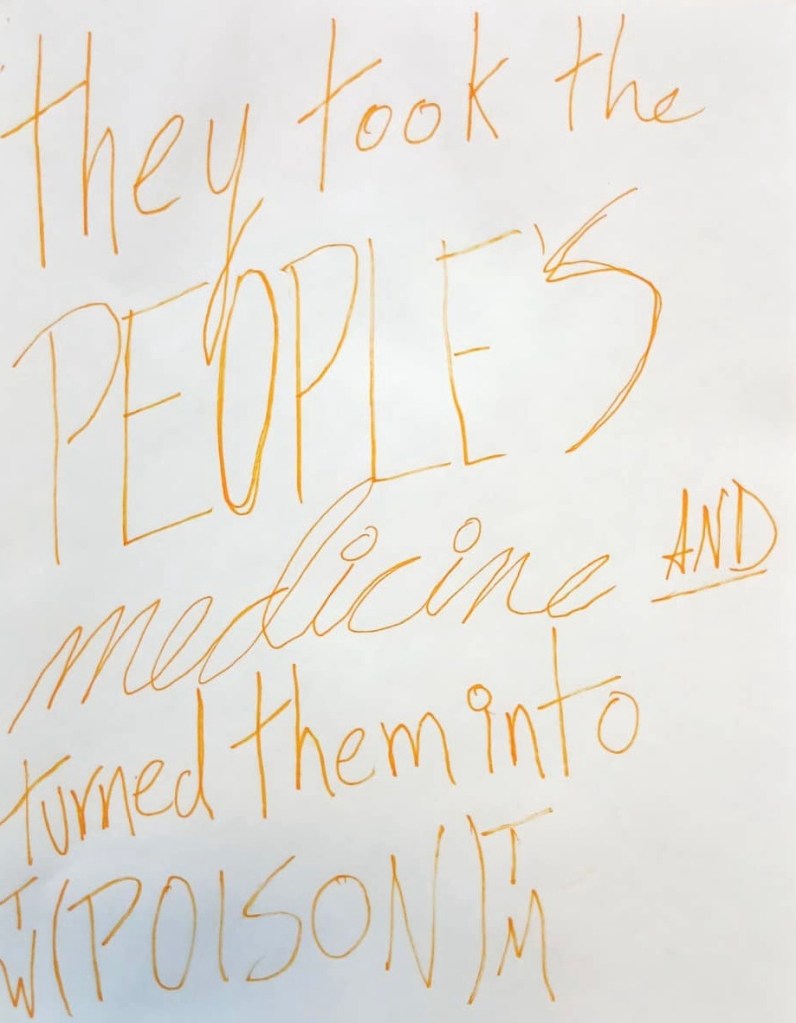 they took the
PEOPLE'S
medicine AND
turned them into
TW(POISON)TM